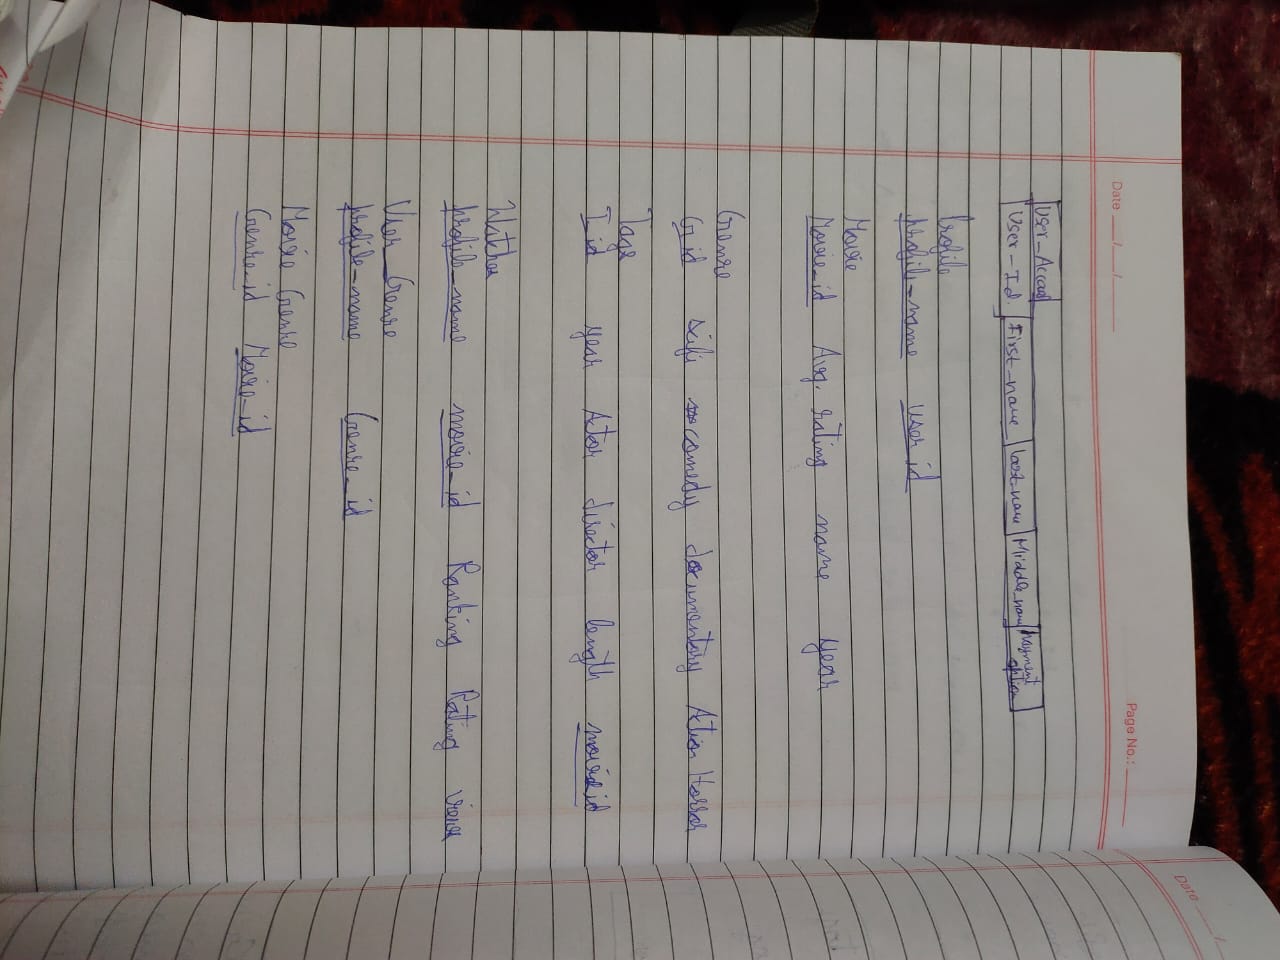 Date
Page No.:
Date
User-Account
User-Id. First-name last-name Middle-name Payment option
Profile
profile-name user id
Movie
Movie-id Avg. rating name year
Genre
G id scifi comedy documentary Action Horror
Tags
I id year Actor director length movie id
Watches
profile-name movie-id Ranking Rating views
User Genre
profile-name Genre-id
Movie Genre
Genre-id Movie-id